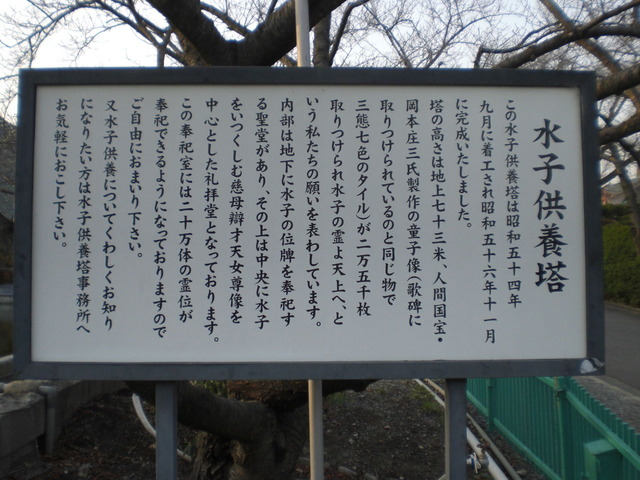 水子供養塔
この水子供養塔は昭和五十四年
九月に着工され昭和五十六年十一月
に完成いたしました。
塔の高さは地上七十三米、人間国宝・
岡本庄三氏製作の童子像(歌碑に
取りつけられているのと同じ物で
三態七色のタイル)が二万五千枚
取りつけられ水子の霊よ天上へ、と
いう私たちの願いを表わしています。
内部は地下に水子の位牌を奉祀す
る聖堂があり、その上は中央に水子
をいつくしむ慈母辯才天女尊像を
中心とした礼拝堂となっております。
この奉祀室には二十万体の霊位が
奉祀できるようになっておりますので
ご自由におまいり下さい。
又水子供養についてくわしくお知り
になりたい方は水子供養塔事務所へ
お気軽におこし下さい。